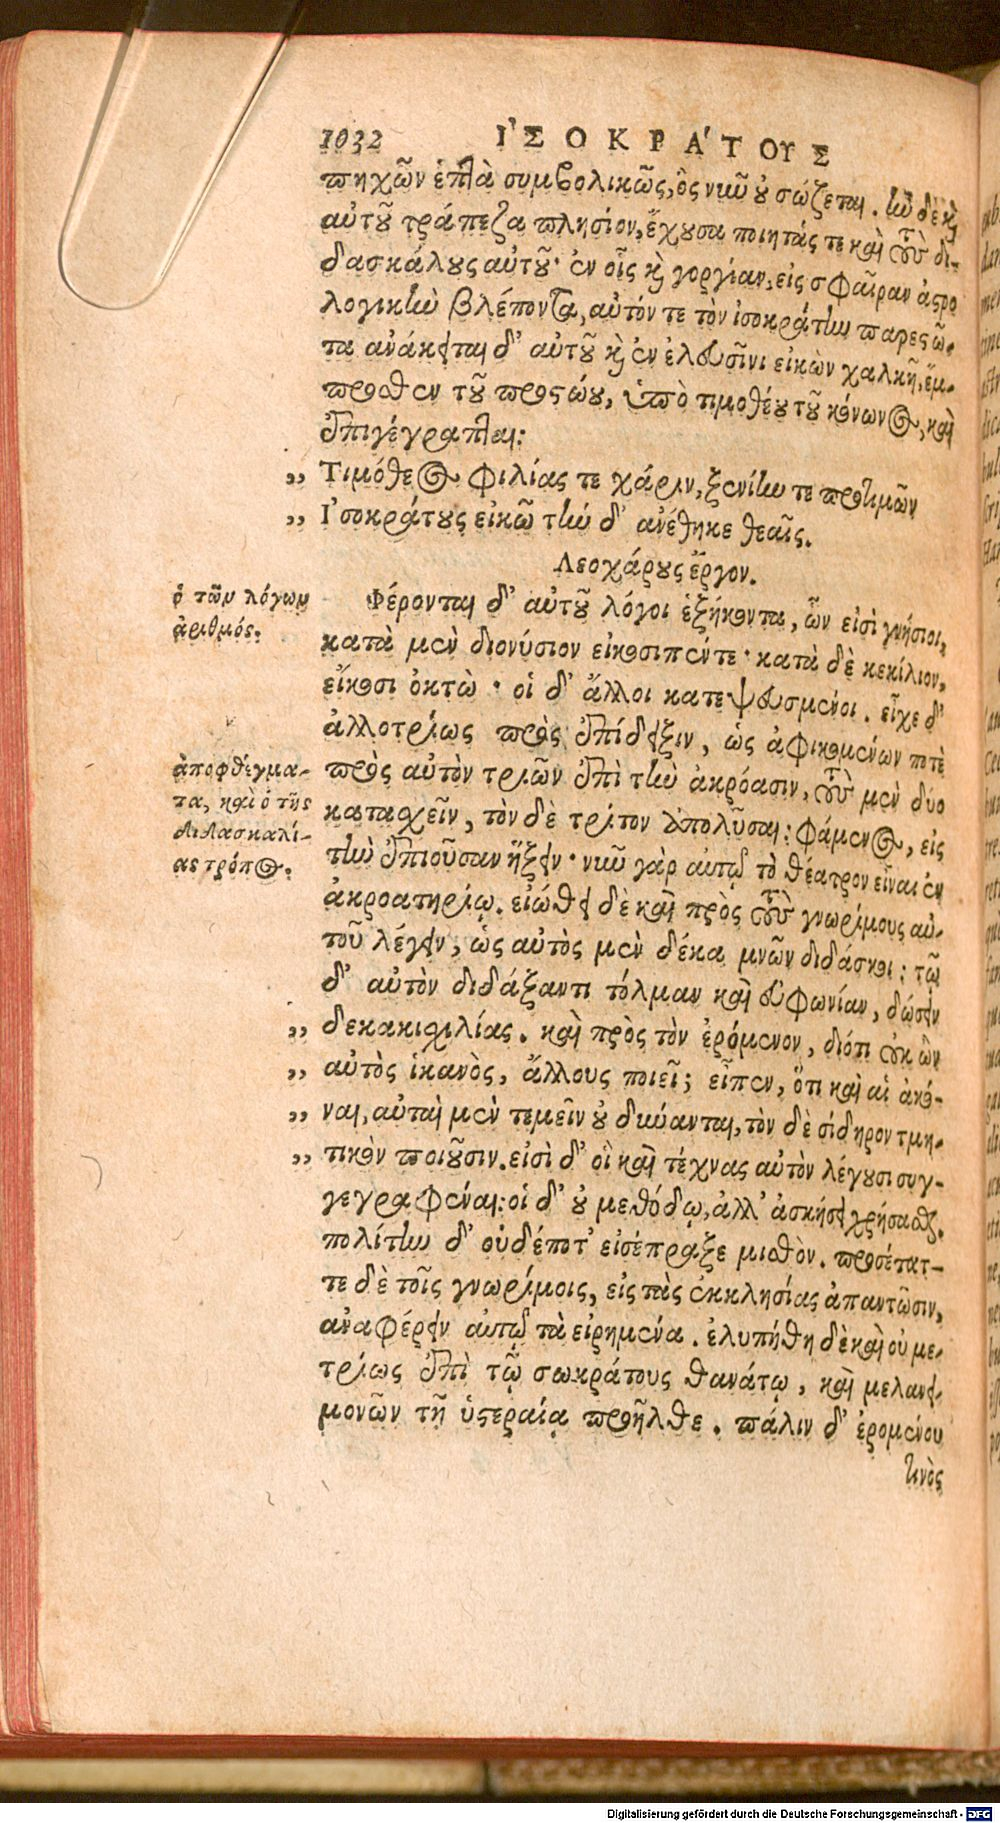 1032 ἸΣΟΚΡΆΤΟΥΣ
πηχῶν ἑπτὰ συμβολικῶς, ὃς νῦν οὐ σώζεται. ἦν δὲ καὶ
αὐτοῦ τράπεζα πλησίον, ἔχουσα ποιητάς τε καὶ τοὺς δι-
δασκάλους αὐτοῦ· ἐν οἷς καὶ γοργίαν, εἰς σφαῖραν ἀστρο
λογικὴν βλέποντα, αὐτόν τε τὸν ἰσοκράτην παρεστῶ-
τα ἀνάκειται δ' αὐτοῦ καὶ ἐν ἐλευσῖνι εἰκὼν χαλκῆ, ἔμ-
προσθεν τοῦ προστώου, ὑπὸ τιμοθέου τοῦ κόνωνος, καὶ
ἐπιγέγραπται:
„ Τιμόθεος φιλίας τε χάριν, ξενίην τε προτιμῶν
„ Ἰσοκράτους εἰκὼ τὴν δ' ἀνέθηκε θεαῖς.
Λεοχάρους ἔργον.
ὁ τῶν λόγων
ἀριθμός.
Φέρονται δ' αὐτοῦ λόγοι ἑξήκοντα, ὧν εἰσὶ γνήσιοι,
κατὰ μὲν διονύσιον εἰκοσιπέντε· κατὰ δὲ κεκίλιον,
εἴκοσι ὀκτὼ· οἱ δ' ἄλλοι κατεψευσμένοι. εἶχε δ'
ἀλλοτρίως πρὸς ἐπίδειξιν, ὡς ἀφικομένων ποτὲ
ἀποφθέγμα-
τα, καὶ ὁ τῆς
διδασκαλί-
ας τρόπος.
πρὸς αὐτὸν τριῶν ἐπὶ τὴν ἀκρόασιν, τοὺς μὲν δύο
κατασχεῖν, τὸν δὲ τρίτον ἀπολῦσαι: φάμενος, εἰς
τὴν ἐπιοῦσαν ἥξειν· νῦν γὰρ αὐτῷ τὸ θέατρον εἶναι ἐν
ἀκροατηρίῳ. εἰώθει δὲ καὶ πρὸς τοὺς γνωρίμους αὐ-
τοῦ λέγειν, ὡς αὐτὸς μὲν δέκα μνῶν διδάσκοι: τῷ
δ' αὐτὸν διδάξαντι τόλμαν καὶ εὐφωνίαν, δώσειν
„ δεκακισχιλίας. καὶ πρὸς τὸν ἐρόμενον, διότι οὐκ ὢν
„ αὐτὸς ἱκανὸς, ἄλλους ποιεῖ; εἶπεν, ὅτι καὶ αἱ ἀκό-
„ ναι, αὐταὶ μὲν τεμεῖν οὐ δύνανται, τὸν δὲ σίδηρον τμη-
„ τικὸν ποιοῦσιν. εἰσὶ δ' οἳ καὶ τέχνας αὐτὸν λέγουσι συγ-
γεγραφέναι: οἱ δ' οὐ μεθόδῳ, ἀλλ' ἀσκήσει χρήσασθαι.
πολίτην δ' οὐδέποτ' εἰσέπραξε μισθὸν. προσέτατ-
τε δὲ τοῖς γνωρίμοις, εἰς τὰς ἐκκλησίας ἀπαντῶσιν,
ἀναφέρειν αὐτῷ τὰ εἰρημένα. ἐλυπήθη δὲ καὶ οὐ με-
τρίως ἐπὶ τῷ σωκράτους θανάτῳ, καὶ μελανει-
μονῶν τῇ ὑστεραίᾳ προῆλθε. πάλιν δ' ἐρομένου
τινὸς
Digitalisierung gefördert durch die Deutsche Forschungsgemeinschaft - DFG